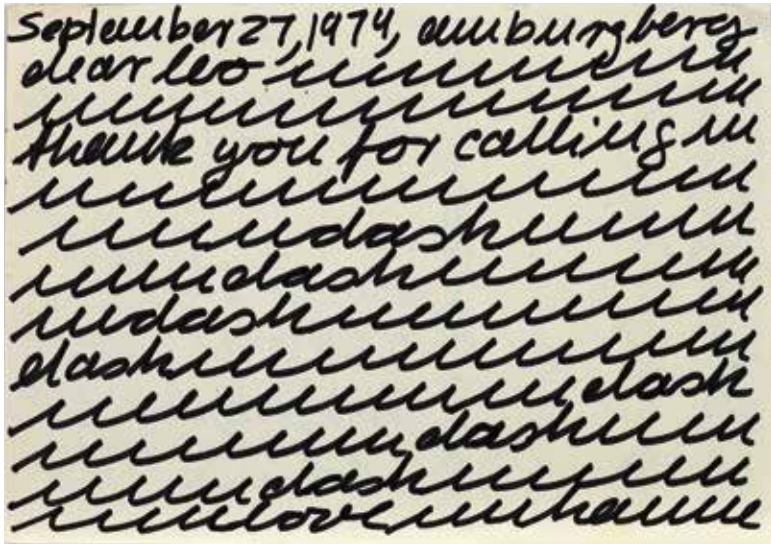 September 27, 1974, amburgberg
dear leo
thank you for calling
dash
dash
dash
dash
dash
dash
dash
love hanne